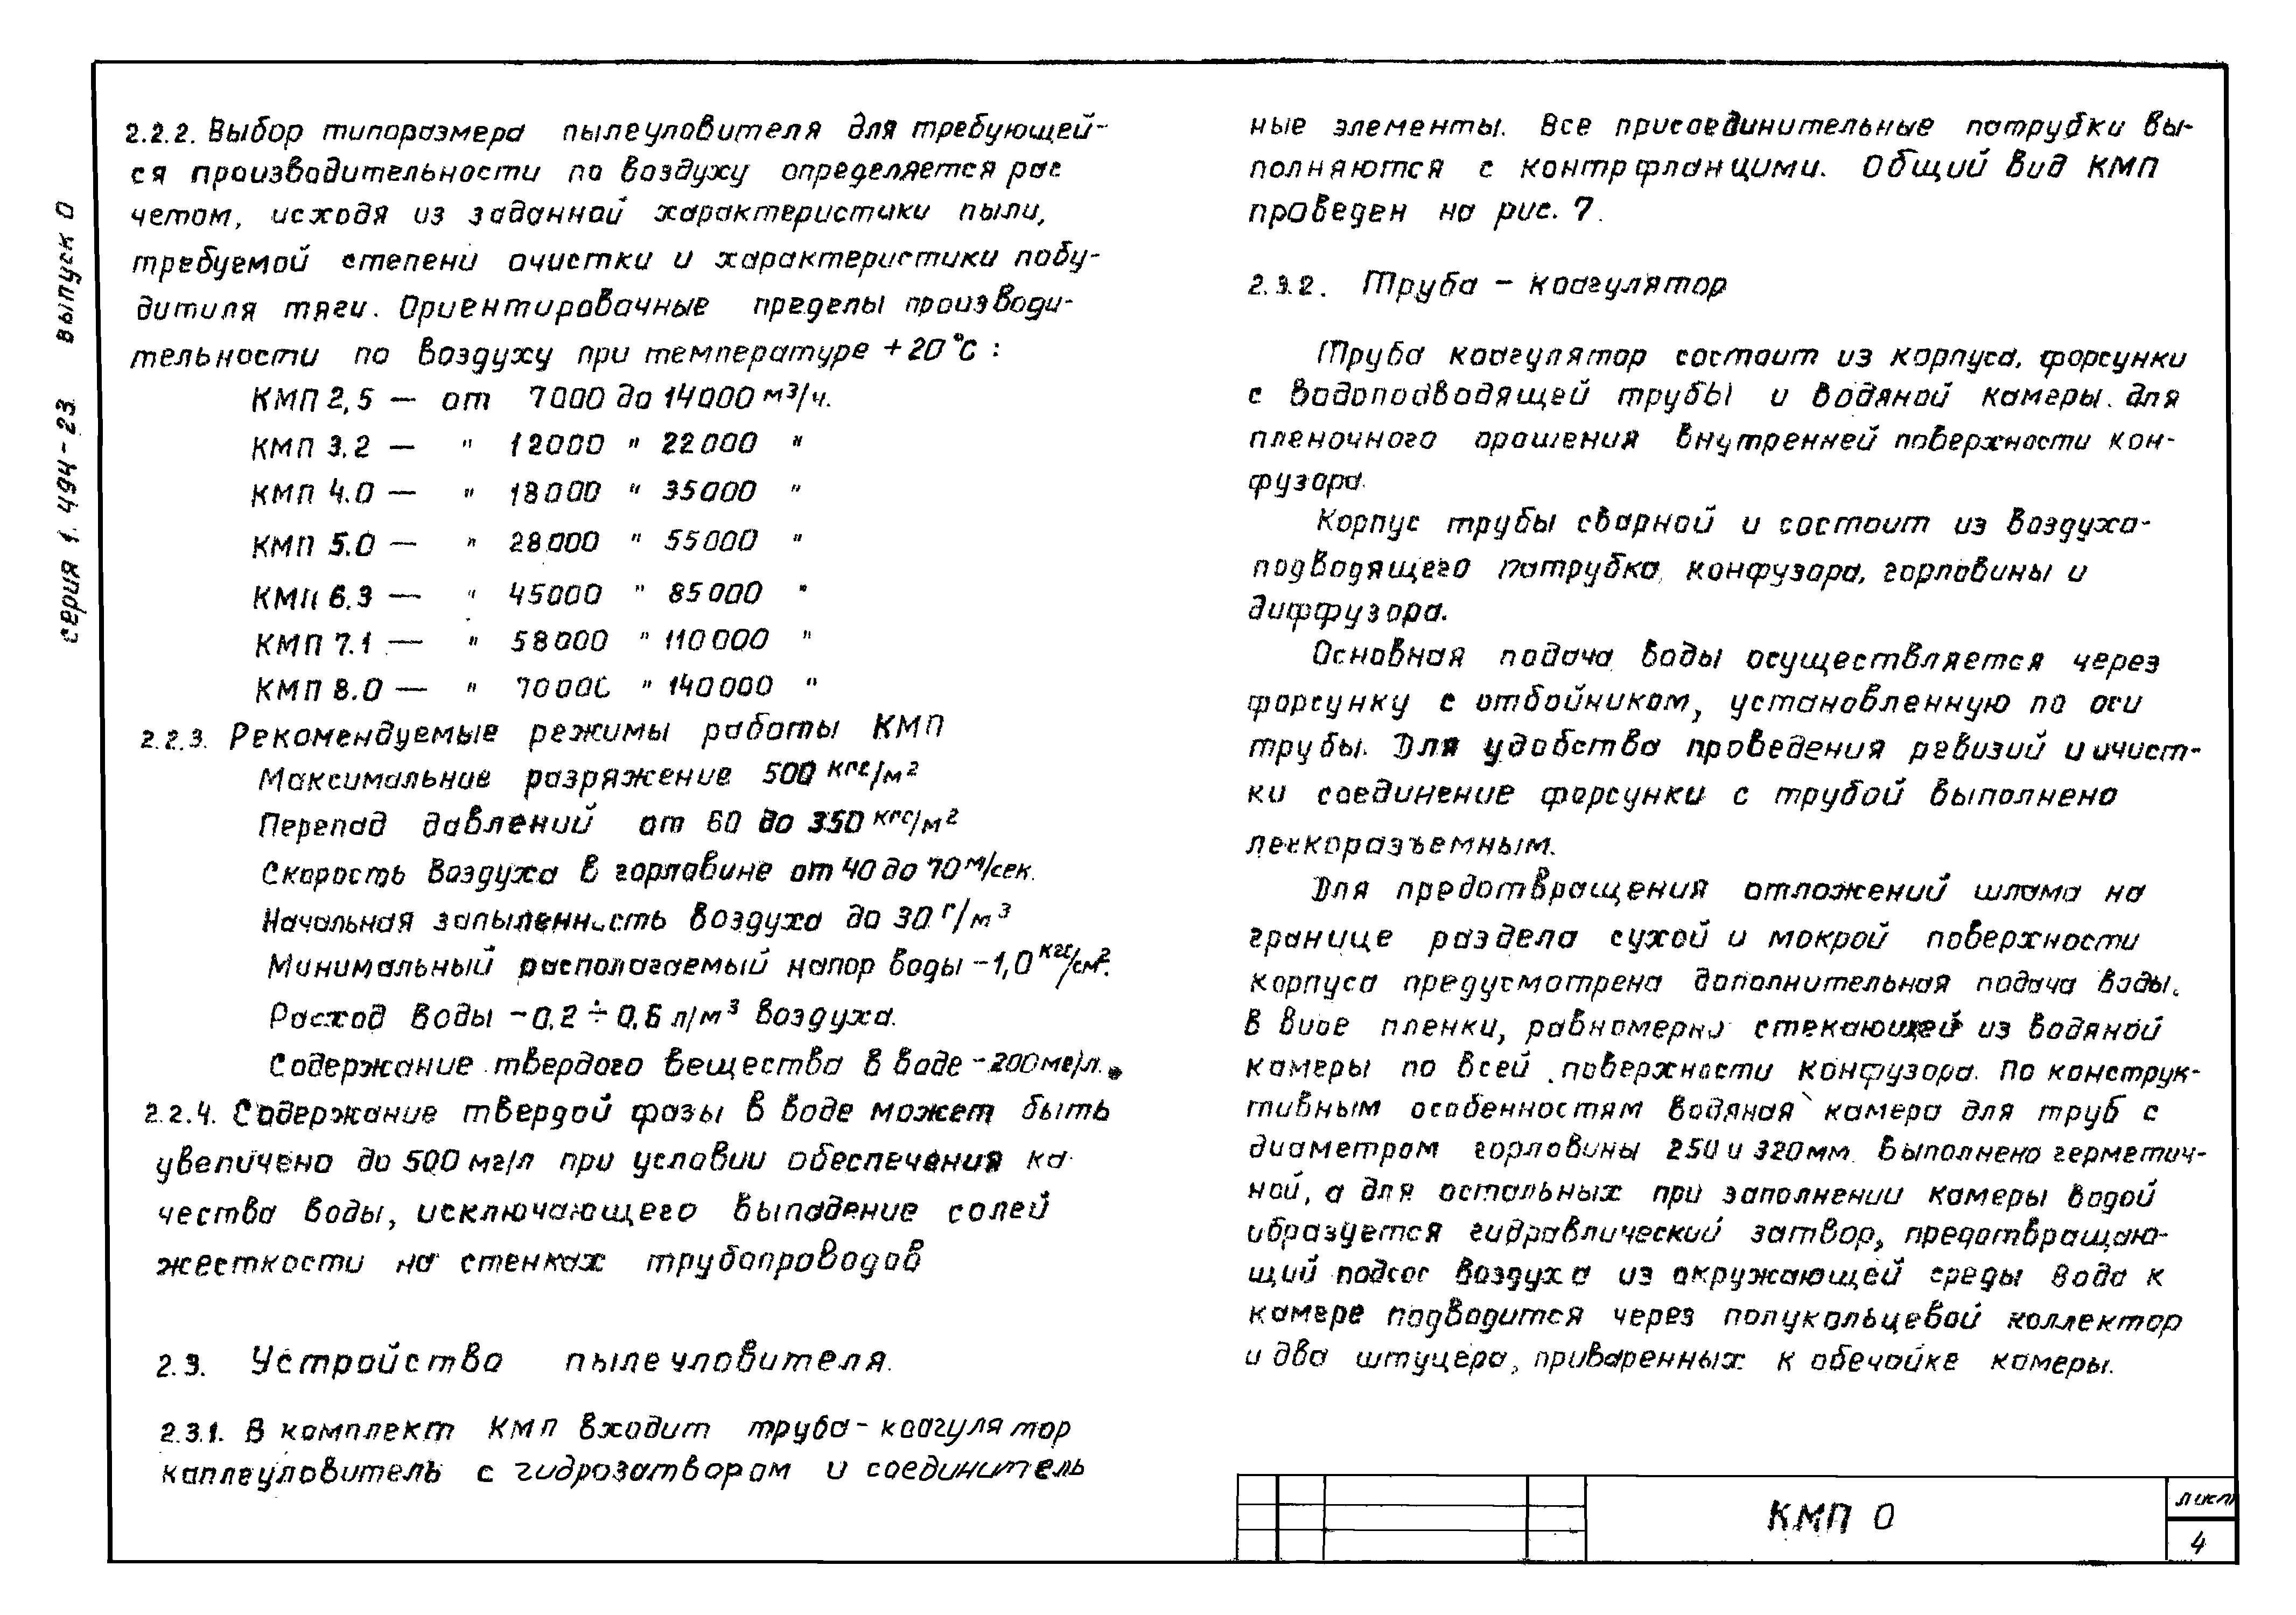 серия 1.494-23 выпуск 0
2.2.2. Выбор типоразмера пылеуловителя для требующей-
ся производительности по воздуху определяется рас
четом, исходя из заданной характеристики пыли,
требуемой степени очистки и характеристики побу-
дитиля тяги. Ориентировочные пределы производи-
тельности по воздуху при температуре +20°С :
КМП 2,5 — от 7000 до 14000 м³/ч.
КМП 3.2 — " 12000 " 22000 "
КМП 4.0 — " 18000 " 35000 "
КМП 5.0 — " 28000 " 55000 "
КМП 6.3 — " 45000 " 85000 "
КМП 7.1 — " 58000 " 110000 "
КМП 8.0 — " 70000 " 140000 "
2.2.3. Рекомендуемые режимы работы КМП
Максимальние разряжение 500 кгс/м²
Перепад давлений от 60 до 350 кгс/м²
Скорость воздуха в горловине от 40 до 70 м/сек.
Начальная запыленность воздуха до 30 г/м³
Минимальный располагаемый напор воды -1,0 кгс/см².
Расход воды -0,2 ÷ 0,6 л/м³ воздуха.
Содержание твердого вещества в воде -200мг/л.
2.2.4. Содержание твердой фазы в воде может быть
увеличено до 500 мг/л при условии обеспечения ка-
чества воды, исключающего выпадение солей
жесткости на стенках трубопроводов
2.3. Устройство пылеуловителя.
2.3.1. В комплект КМП входит труба-коагулятор
каплеуловитель с гидрозатвором и соединитель
ные элементы. Все присоединительные патрубки вы-
полняются с контрфланцими. Общий вид КМП
проведен на рис. 7.
2.3.2. Труба - коагулятор
Труба коагулятор состоит из корпуса, форсунки
с водоподводящей трубы и водяной камеры для
пленочного орошения внутренней поверхности кон-
фузора.
Корпус трубы сварной и состоит из воздухо-
подводящего патрубка, конфузора, горловины и
диффузора.
Основная подача воды осуществляется через
форсунку с отбойником, установленную по оси
трубы. Для удобства проведения ревизий и очист-
ки соединение форсунки с трубой выполнено
легкоразъемным.
Для предотвращения отложений шлама на
границе раздела сухой и мокрой поверхности
корпуса предусмотрена дополнительная подача воды.
в виде пленки, равномерно стекающей из водяной
камеры по всей поверхности конфузора. По конструк-
тивным особенностям водяная камера для труб с
диаметром горловины 250 и 320мм. Выполнена герметич-
ной, а для остальных при заполнении камеры водой
образуется гидравлический затвор, предотвращаю-
щий подсос воздуха из окружающей среды Вода к
камере подводится через полукольцевой коллектор
и два штуцера, приваренных к обечайке камеры.
КМП 0
лист
4